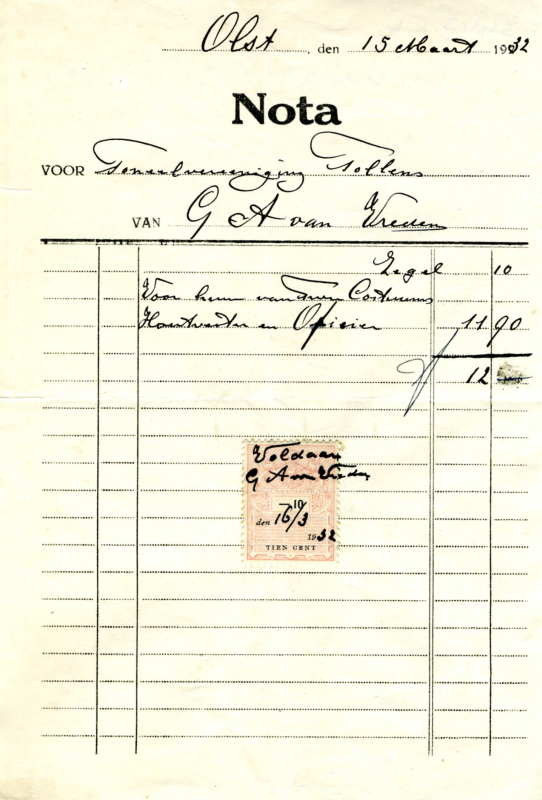 Olst, den 15 Maart 1932
Nota
VOOR Toneelvereeniging Tollens
VAN G A van Vreden
Zegel 10
Voor huur van twee Costuums
Houtvester en Oficier 11 90
12
Voldaan
G A van Vreden
10
den 16/3
1932
TIEN CENT